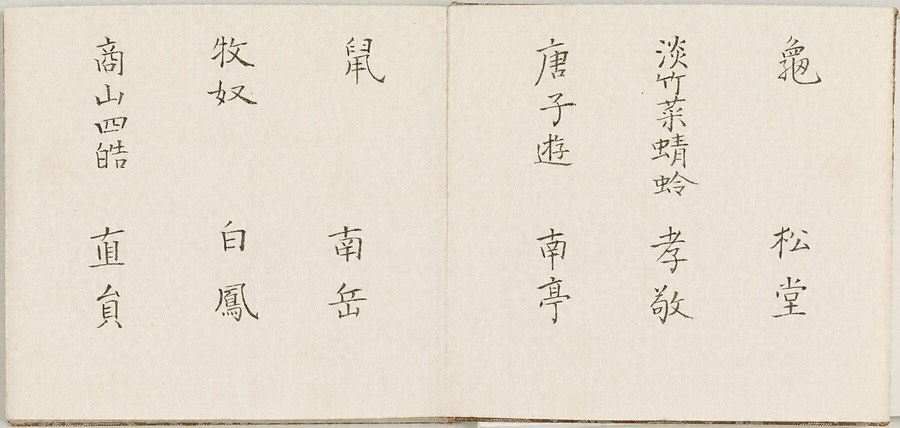 龜 松堂
淡竹菜蜻蛉 孝敬
唐子遊 南亭
鼠 南岳
牧奴 白鳳
商山四皓 直員